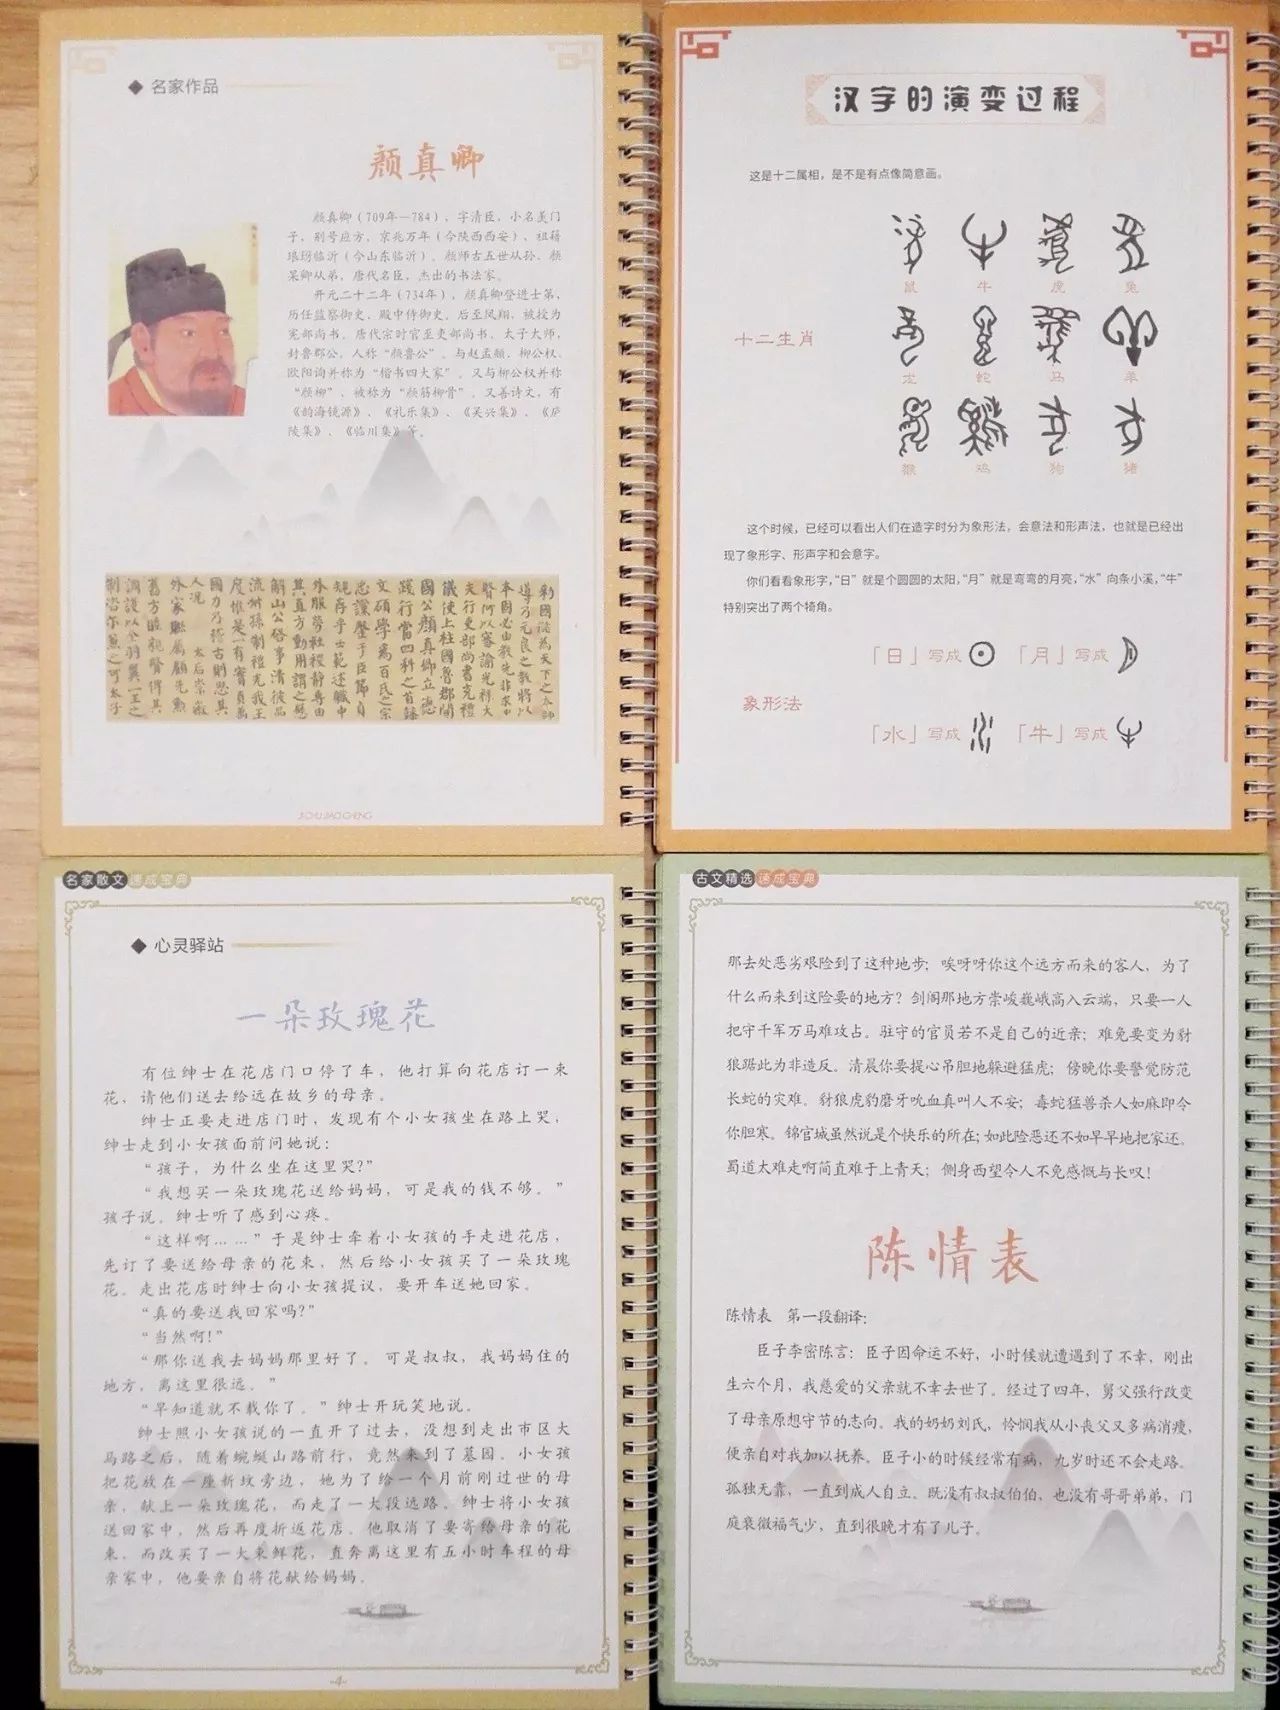 ◆ 名家作品
颜真卿
颜真卿（709年—784），字清臣，小名羡门
子，别号应方，京兆万年（今陕西西安），祖籍
琅琊临沂（今山东临沂）。颜师古五世从孙、颜
杲卿从弟，唐代名臣，杰出的书法家。
开元二十二年（734年），颜真卿登进士第，
历任监察御史、殿中侍御史。后至凤翔，被授为
宪部尚书。唐代宗时官至吏部尚书、太子太师，
封鲁郡公，人称“颜鲁公”。与赵孟頫、柳公权、
欧阳询并称为“楷书四大家”。又与柳公权并称
“颜柳”，被称为“颜筋柳骨”。又善诗文，有
《韵海镜源》、《礼乐集》、《吴兴集》、《庐
陵集》、《临川集》等。
汉字的演变过程
这是十二属相，是不是有点像简意画。
十二生肖
鼠 牛 虎 兔
龙 蛇 马 羊
猴 鸡 狗 猪
这个时候，已经可以看出人们在造字时分为象形法，会意法和形声法，也就是已经出
现了象形字、形声字和会意字。
你们看看象形字，“日”就是个圆圆的太阳，“月”就是弯弯的月亮，“水”向条小溪，“牛”
特别突出了两个犄角。
象形法
「日」写成 「月」写成
「水」写成 「牛」写成
名家散文速成宝典
◆ 心灵驿站
一朵玫瑰花
有位绅士在花店门口停了车，他打算向花店订一束
花，请他们送去给远在故乡的母亲。
绅士正要走进店门时，发现有个小女孩坐在路上哭，
绅士走到小女孩面前问她说：
“孩子，为什么坐在这里哭?”
“我想买一朵玫瑰花送给妈妈，可是我的钱不够。”
孩子说。绅士听了感到心疼。
“这样啊……”于是绅士牵着小女孩的手走进花店，
先订了要送给母亲的花束，然后给小女孩买了一朵玫瑰
花。走出花店时绅士向小女孩提议，要开车送她回家。
“真的要送我回家吗?”
“当然啊!”
“那你送我去妈妈那里好了。可是叔叔，我妈妈住的
地方，离这里很远。”
“早知道就不载你了。”绅士开玩笑地说。
绅士照小女孩说的一直开了过去，没想到走出市区大
马路之后，随着蜿蜒山路前行，竟然来到了墓园。小女孩
把花放在一座新坟旁边，她为了给一个月前刚过世的母
亲，献上一朵玫瑰花，而走了一大段远路。绅士将小女孩
送回家中，然后再度折返花店。他取消了要寄给母亲的花
束，而改买了一大束鲜花，直奔离这里有五小时车程的母
亲家中，他要亲自将花献给妈妈。
-4-
古文精选速成宝典
那去处恶劣艰险到了这种地步；唉呀呀你这个远方而来的客人，为了
什么而来到这险要的地方？剑阁那地方崇峻巍峨高入云端，只要一人
把守千军万马难攻占。驻守的官员若不是自己的近亲；难免要变为豺
狼踞此为非造反。清晨你要提心吊胆地躲避猛虎；傍晚你要警觉防范
长蛇的灾难。豺狼虎豹磨牙吮血真叫人不安；毒蛇猛兽杀人如麻即令
你胆寒。锦官城虽然说是个快乐的所在；如此险恶还不如早早地把家还。
蜀道太难走啊简直难于上青天；侧身西望令人不免感慨与长叹！
陈情表
陈情表 第一段翻译：
臣子李密陈言：臣子因命运不好，小时候就遭遇到了不幸，刚出
生六个月，我慈爱的父亲就不幸去世了。经过了四年，舅父强行改变
了母亲原想守节的志向。我的奶奶刘氏，怜悯我从小丧父又多病消瘦，
便亲自对我加以抚养。臣子小的时候经常有病，九岁时还不会走路。
孤独无靠，一直到成人自立。既没有叔叔伯伯，也没有哥哥弟弟，门
庭衰微福气少，直到很晚才有了儿子。